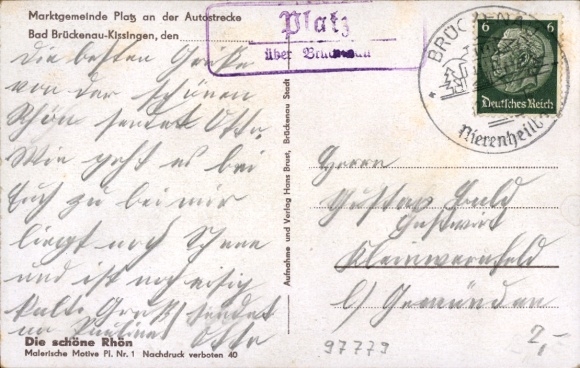 Marktgemeinde Platz an der Autostrecke
Bad Brückenau-Kissingen, den
Platz
über Brückenau
BRÜCKENAU
Nierenheilb
6 6
Deutsches Reich
Die besten Grüße
von der schönen
Rhön sendet Otto.
Wie geht es bei
Euch zu bei mir
liegt noch Schnee
und ist noch eisig
kalt. Gruß sendet
Otto
Die schöne Rhön
Malerische Motive Pl. Nr. 1 Nachdruck verboten 40
Aufnahme und Verlag Hans Brust, Brückenau Stadt
Herrn
Gustav
Gastwirt
Kleinwernfeld
b/ Gemünden
97779
2,-